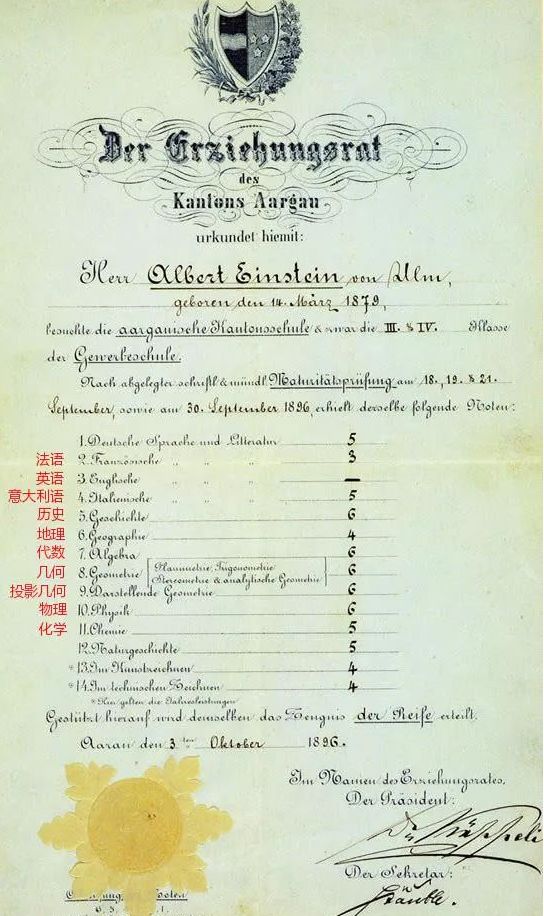 Der Erziehungsrat
des
Kantons Aargau
urkundet hiemit:
Herr Albert Einstein von Ulm,
geboren den 14. März 1879,
besuchte die aargauische Kantonsschule & zwar die III. & IV. Klasse
der Gewerbeschule.
Nach abgelegter schriftl. & mündl. Maturitätsprüfung am 18., 19. & 21.
September, sowie am 30. September 1896, erhielt derselbe folgende Noten:
1. Deutsche Sprache und Litteratur 5
法语 2. Französische " " " 3
英语 3. Englische " " " —
意大利语 4. Italienische " " " 5
历史 5. Geschichte 6
地理 6. Geographie 4
代数 7. Algebra 6
几何 8. Geometrie [Planimetrie, Trigonometrie Stereometrie & analytische Geometrie] 6
投影几何 9. Darstellende Geometrie 6
物理 10. Physik 6
化学 11. Chemie 5
12. Naturgeschichte 5
*13. Im Kunstzeichnen 4
*14. Im technischen Zeichnen 4
*Hier gelten die Jahresleistungen
Gestützt hierauf wird demselben das Zeugnis der Reife erteilt.
Aarau den 3ten Oktober 1896.
Im Namen des Erziehungsrates,
Der Präsident:
Der Sekretär: